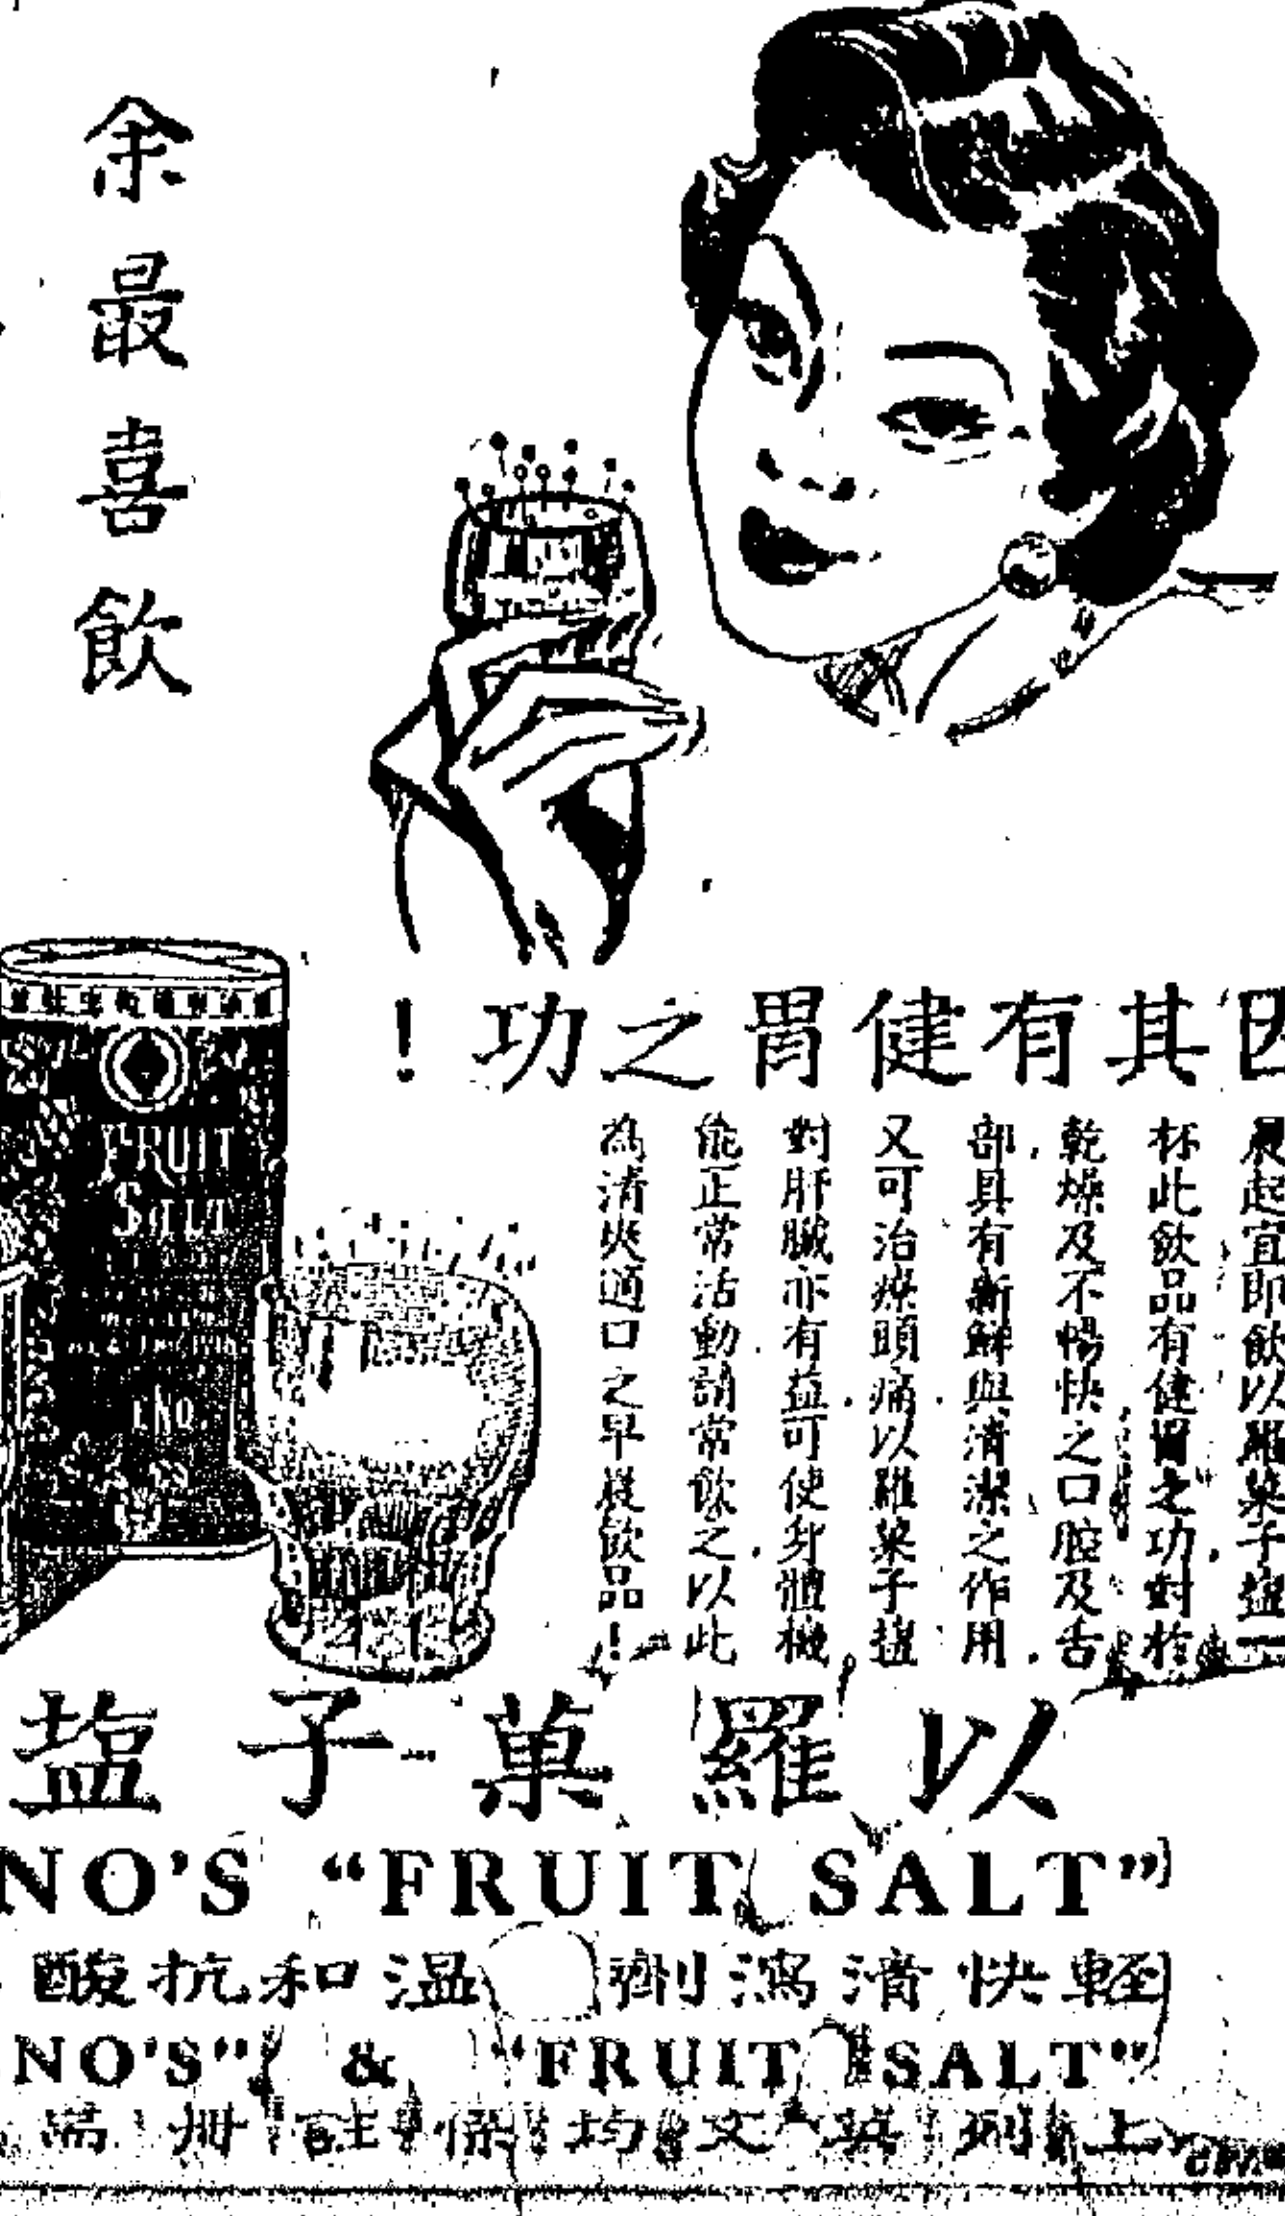 余最喜飲
因其有健胃之功!
晨起宜即飲以羅菓子塩一
杯此飲品有健胃之功.對於
乾燥及不暢快之口腔及舌
部.具有新鮮與清潔之作用.
又可治療頭痛以羅菓子塩
對肝臟亦有益.可使身體機
能正常活動請常飲之.以此
為清爽適口之早晨飲品!
FRUIT
SALT
ENO
以羅菓子塩
NO'S "FRUIT SALT"
輕快清瀉劑 溫和抗酸
NO'S" & "FRUIT SALT"
上列英文均係註冊